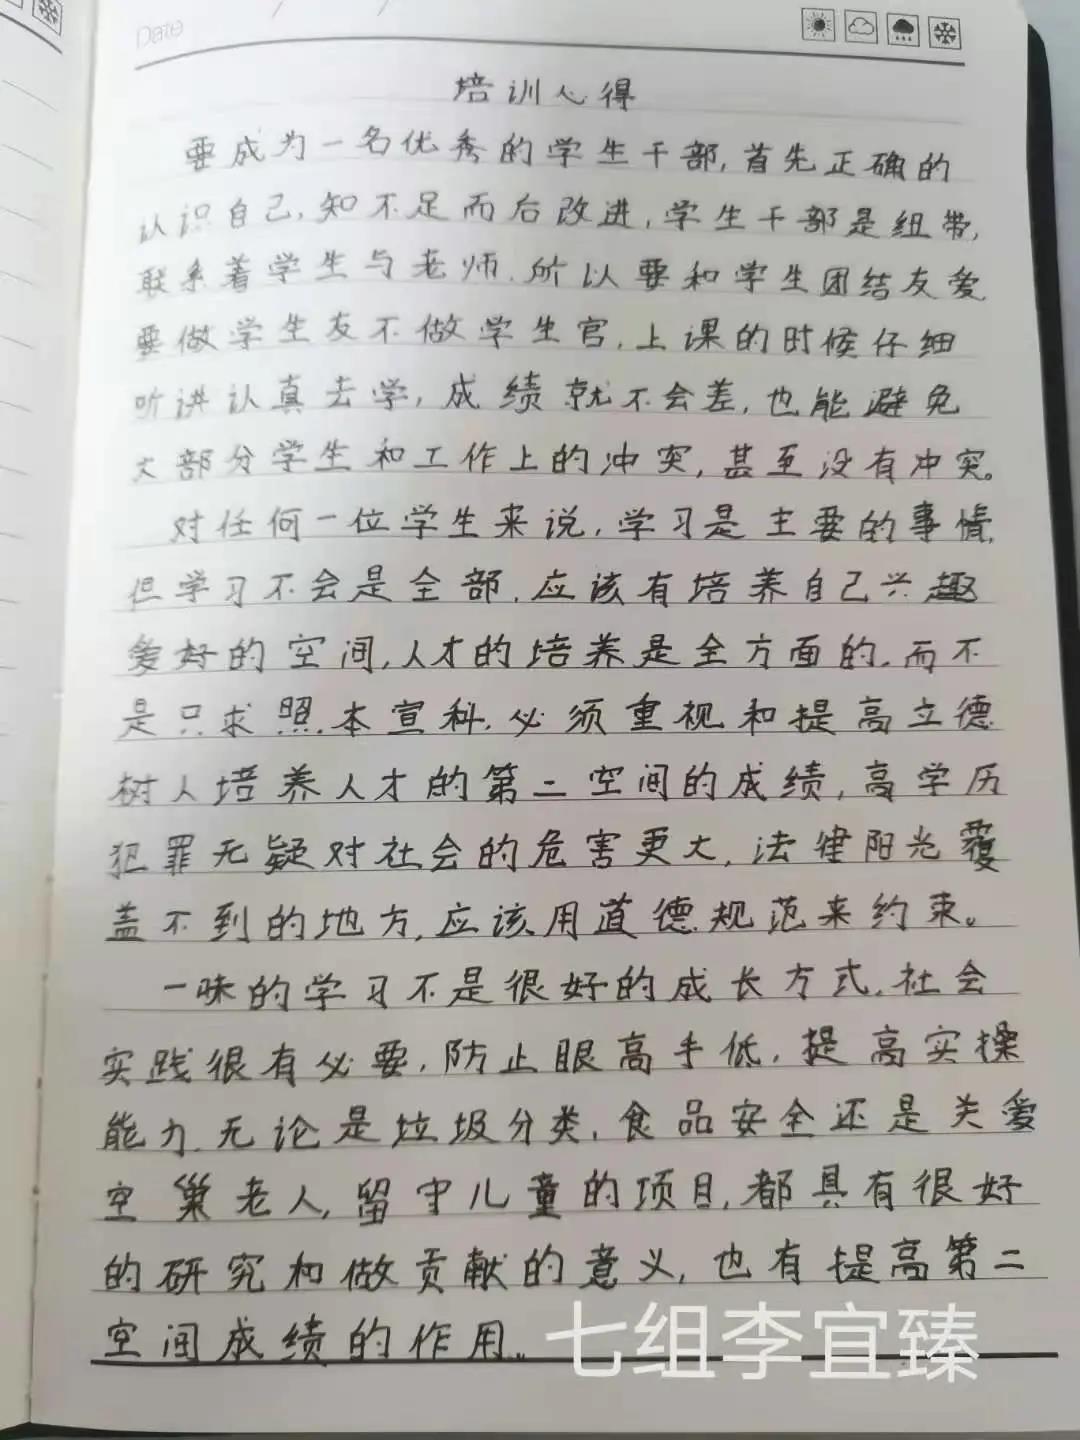 Date / /
培训心得
要成为一名优秀的学生干部,首先正确的
认识自己,知不足而后改进,学生干部是纽带,
联系着学生与老师.所以要和学生团结友爱
要做学生友不做学生官,上课的时候仔细
听讲认真去学,成绩就不会差,也能避免
大部分学生和工作上的冲突,甚至没有冲突。
对任何一位学生来说,学习是主要的事情,
但学习不会是全部,应该有培养自己兴趣
爱好的空间,人才的培养是全方面的,而不
是只求照本宣科,必须重视和提高立德
树人培养人才的第二空间的成绩,高学历
犯罪无疑对社会的危害更大,法律阳光覆
盖不到的地方,应该用道德规范来约束。
一味的学习不是很好的成长方式,社会
实践很有必要,防止眼高手低,提高实操
能力,无论是垃圾分类,食品安全还是关爱
空巢老人,留守儿童的项目,都具有很好
的研究和做贡献的意义,也有提高第二
空间成绩的作用。
七组李宜臻